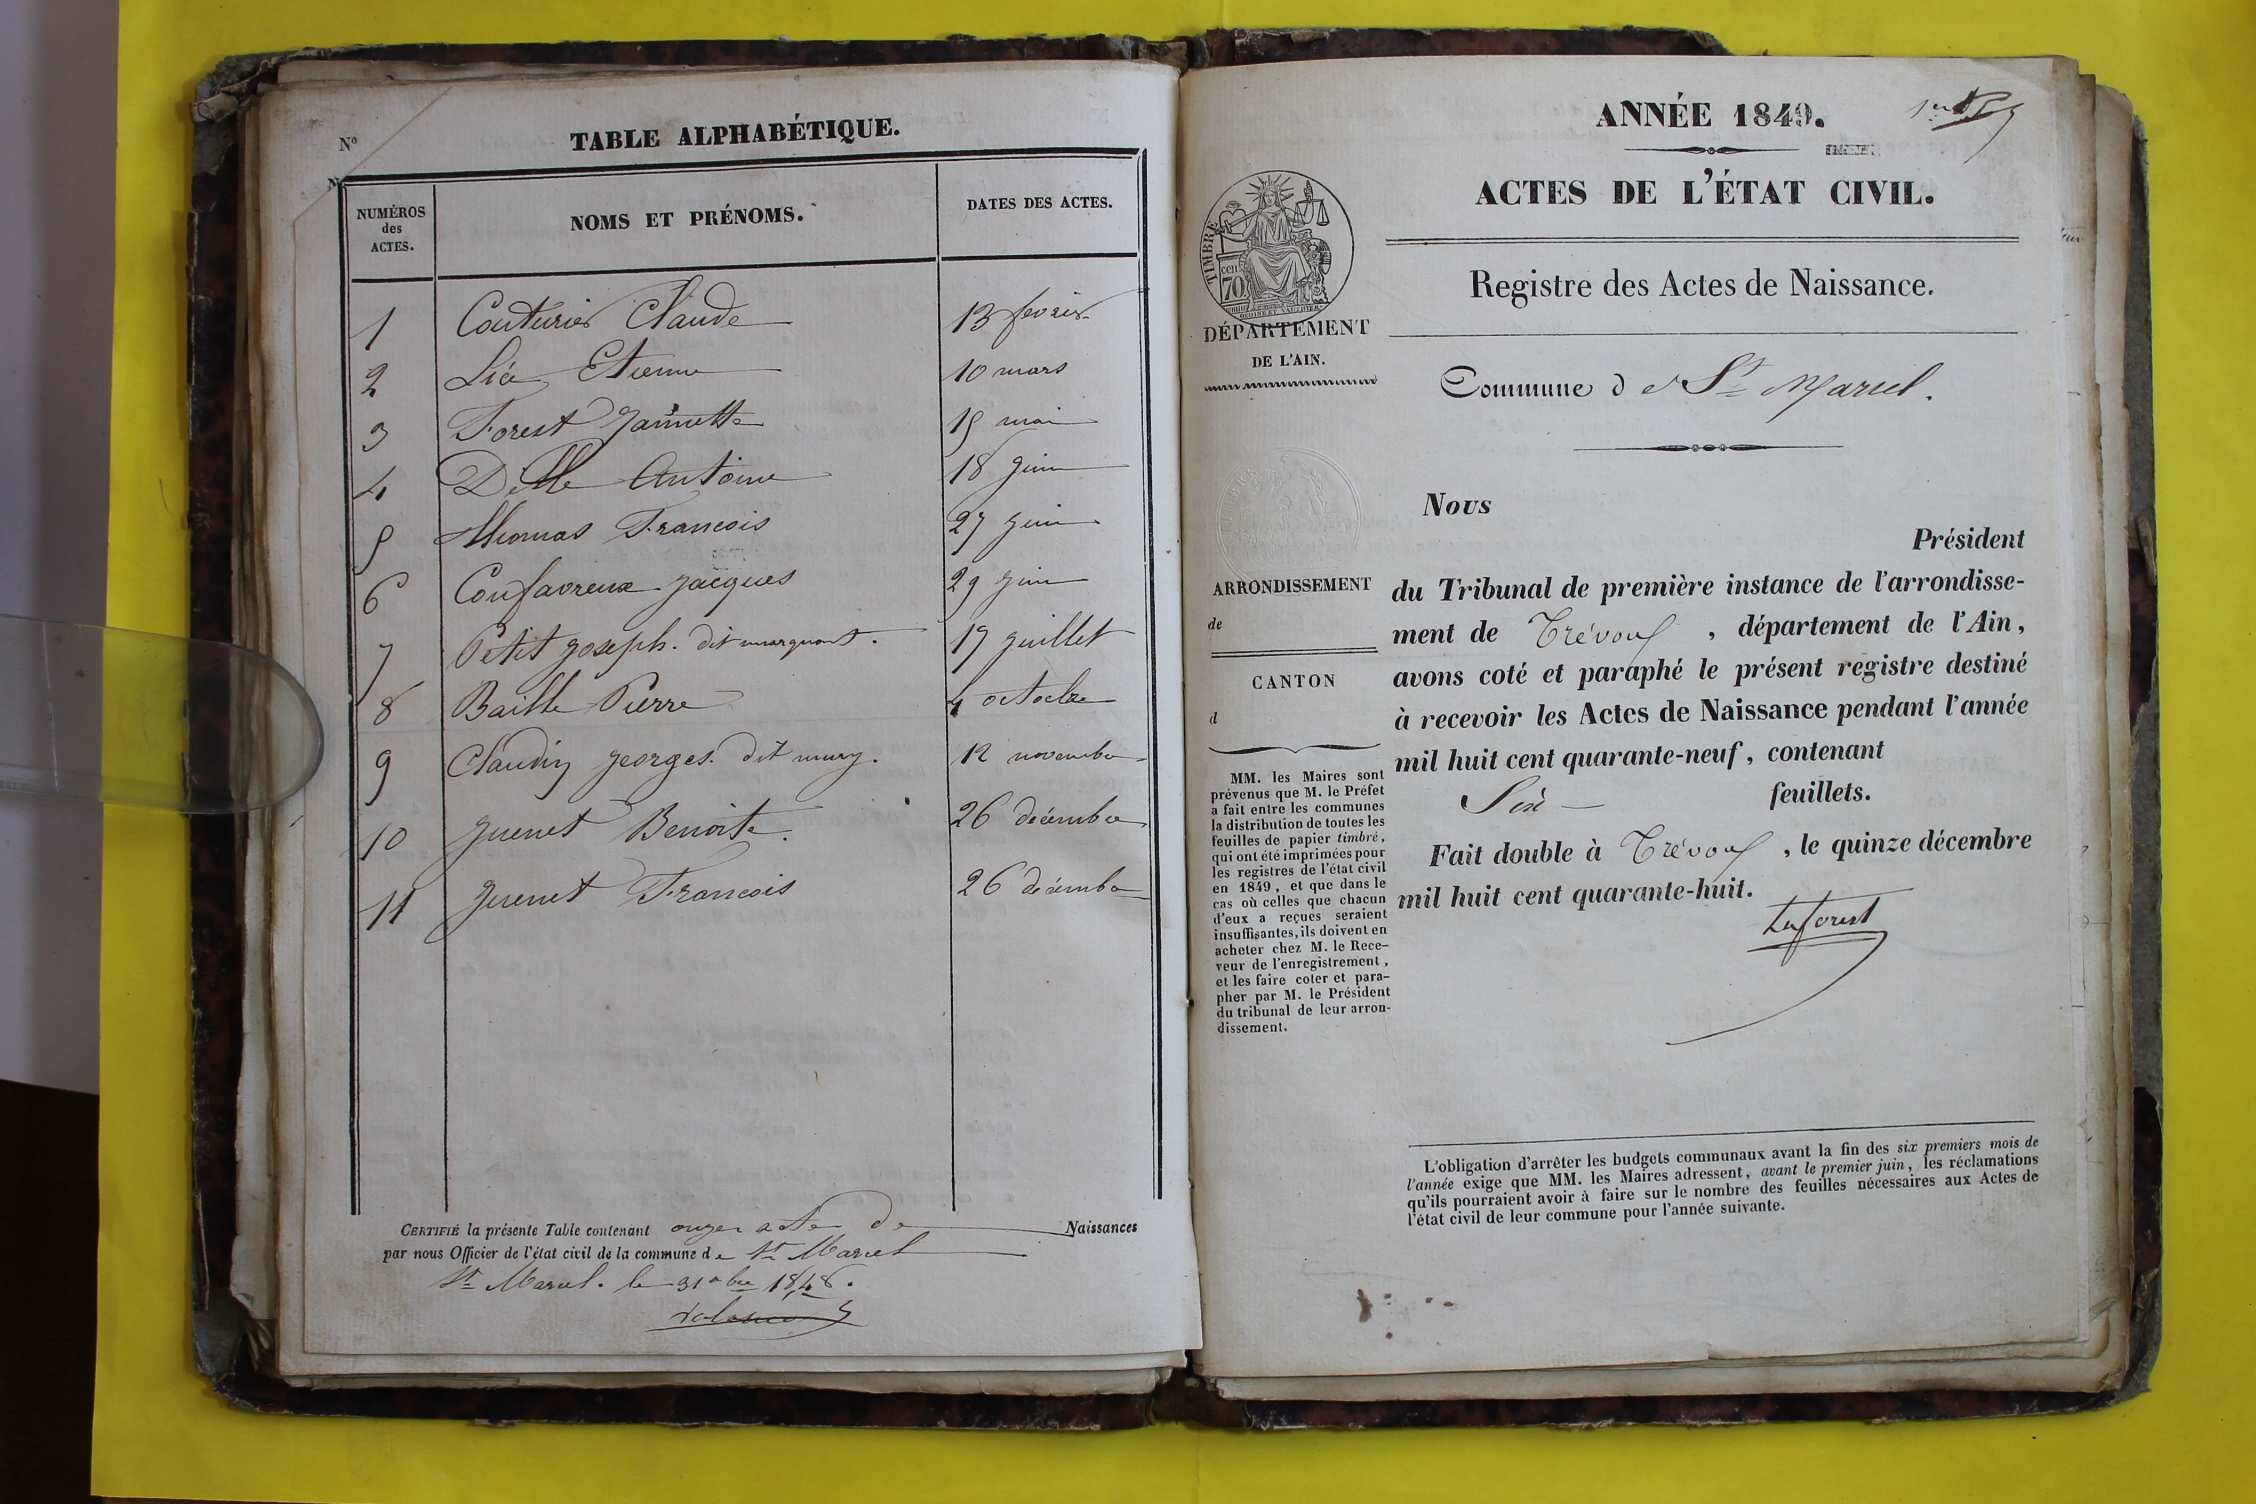 N°
TABLE ALPHABÉTIQUE.
NUMÉROS
des
ACTES.
NOMS ET PRÉNOMS.
DATES DES ACTES.
1 Couturier Claude 13 fevrier
2 Etienne 10 mars
3 Forest Jannette 15 mai
4 Antoine 18 juin
5 Thomas Francois 27 juin
6 Confavreux Jacques 29 juin
7 Petit Joseph. dit 17 juillet
8 Baille Pierre 4 octobre
9 Claudin Georges. dit 12 novembre
10 Juenet Benoite. 26 décembre
11 Juenet Francois 26 décembre
CERTIFIÉ la présente Table contenant onze actes de Naissances
par nous Officier de l'état civil de la commune de St Marcel
St Marcel. le 31 xbre 1848.
ANNÉE 1849.
ACTES DE L'ÉTAT CIVIL.
Registre des Actes de Naissance.
TIMBRE
70
DÉPARTEMENT
DE L'AIN.
Commune de St Marcel.
Nous
Président
du Tribunal de première instance de l'arrondisse-
ment de Trévoux, département de l'Ain,
avons coté et paraphé le présent registre destiné
à recevoir les Actes de Naissance pendant l'année
mil huit cent quarante-neuf, contenant
Six feuillets.
Fait double à Trévoux, le quinze décembre
mil huit cent quarante-huit.
Laforest
ARRONDISSEMENT
de
CANTON
d
MM. les Maires sont
prévenus que M. le Préfet
a fait entre les communes
la distribution de toutes les
feuilles de papier timbré,
qui ont été imprimées pour
les registres de l'état civil
en 1849, et que dans le
cas où celles que chacun
d'eux a reçues seraient
insuffisantes, ils doivent en
acheter chez M. le Rece-
veur de l'enregistrement,
et les faire coter et para-
pher par M. le Président
du tribunal de leur arron-
dissement.
L'obligation d'arrêter les budgets communaux avant la fin des six premiers mois de
l'année exige que MM. les Maires adressent, avant le premier juin, les réclamations
qu'ils pourraient avoir à faire sur le nombre des feuilles nécessaires aux Actes de
l'état civil de leur commune pour l'année suivante.